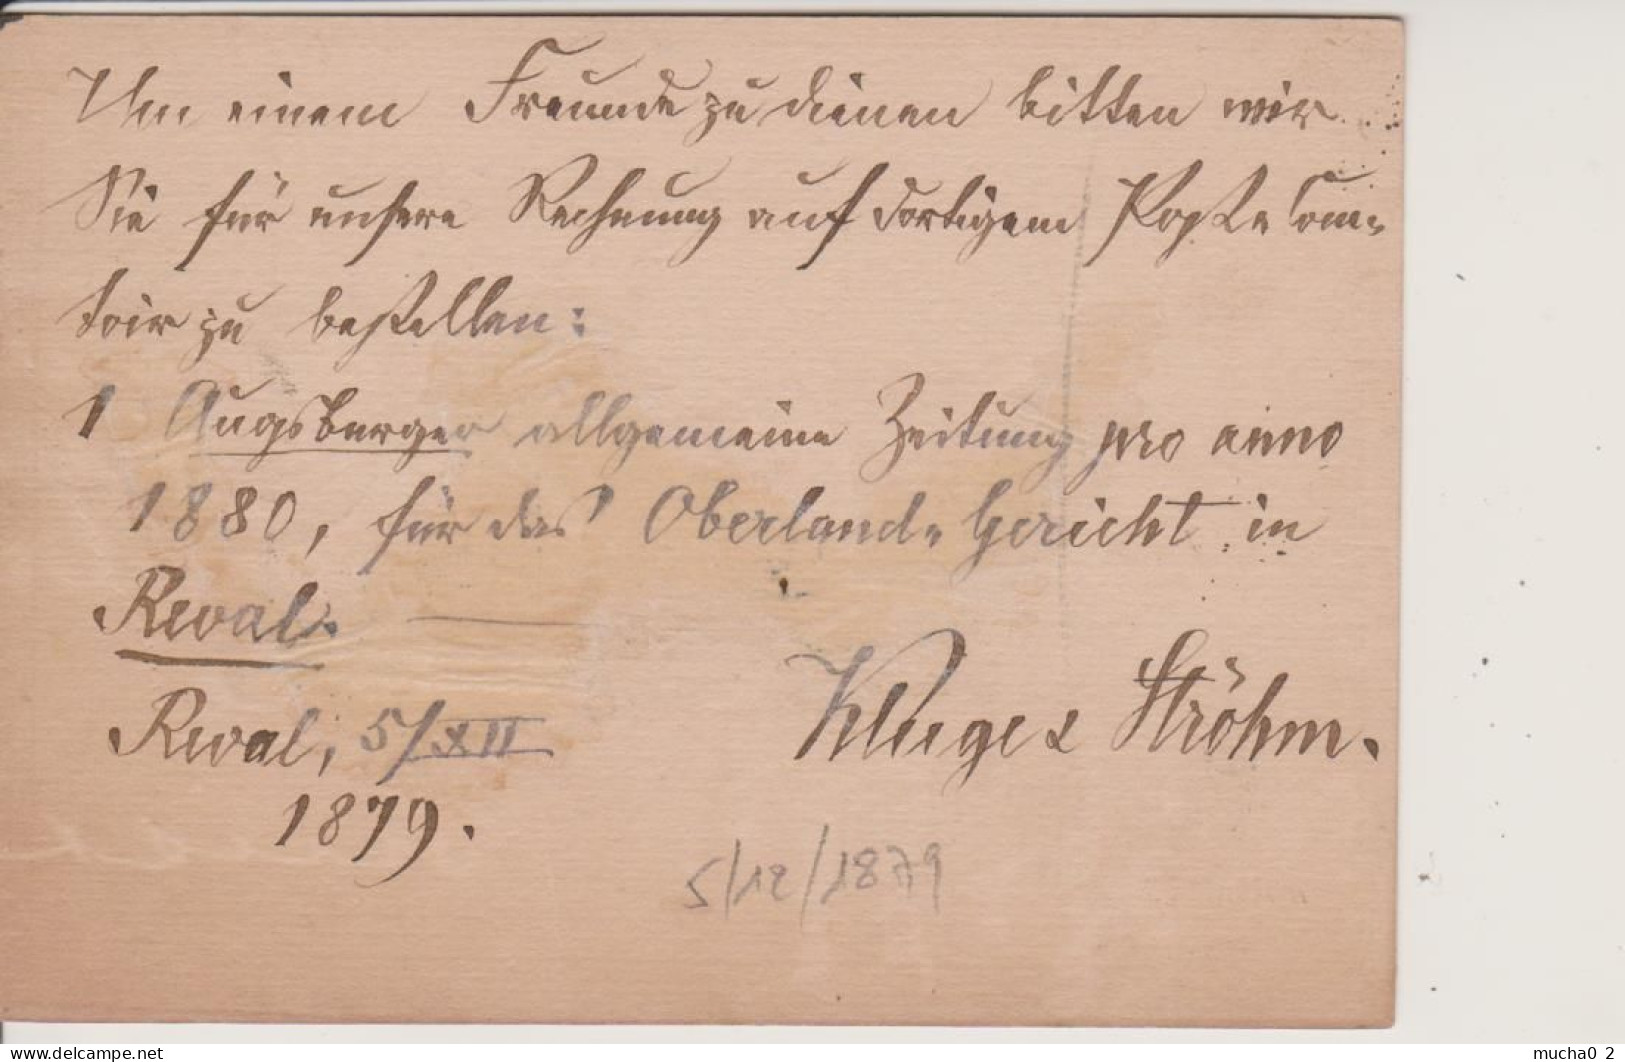 Um einem Freunde zu dienen bitten wir
Sie für unsere Rechnung auf dortigem Post-Com-
toir zu bestellen:
1 Augsburger allgemeine Zeitung pro anno
1880, für das Oberland-Gericht in
Reval.
Kluge & Ströhm.
Reval, 5/XII
1879.
5/12/1879
mucha0_2